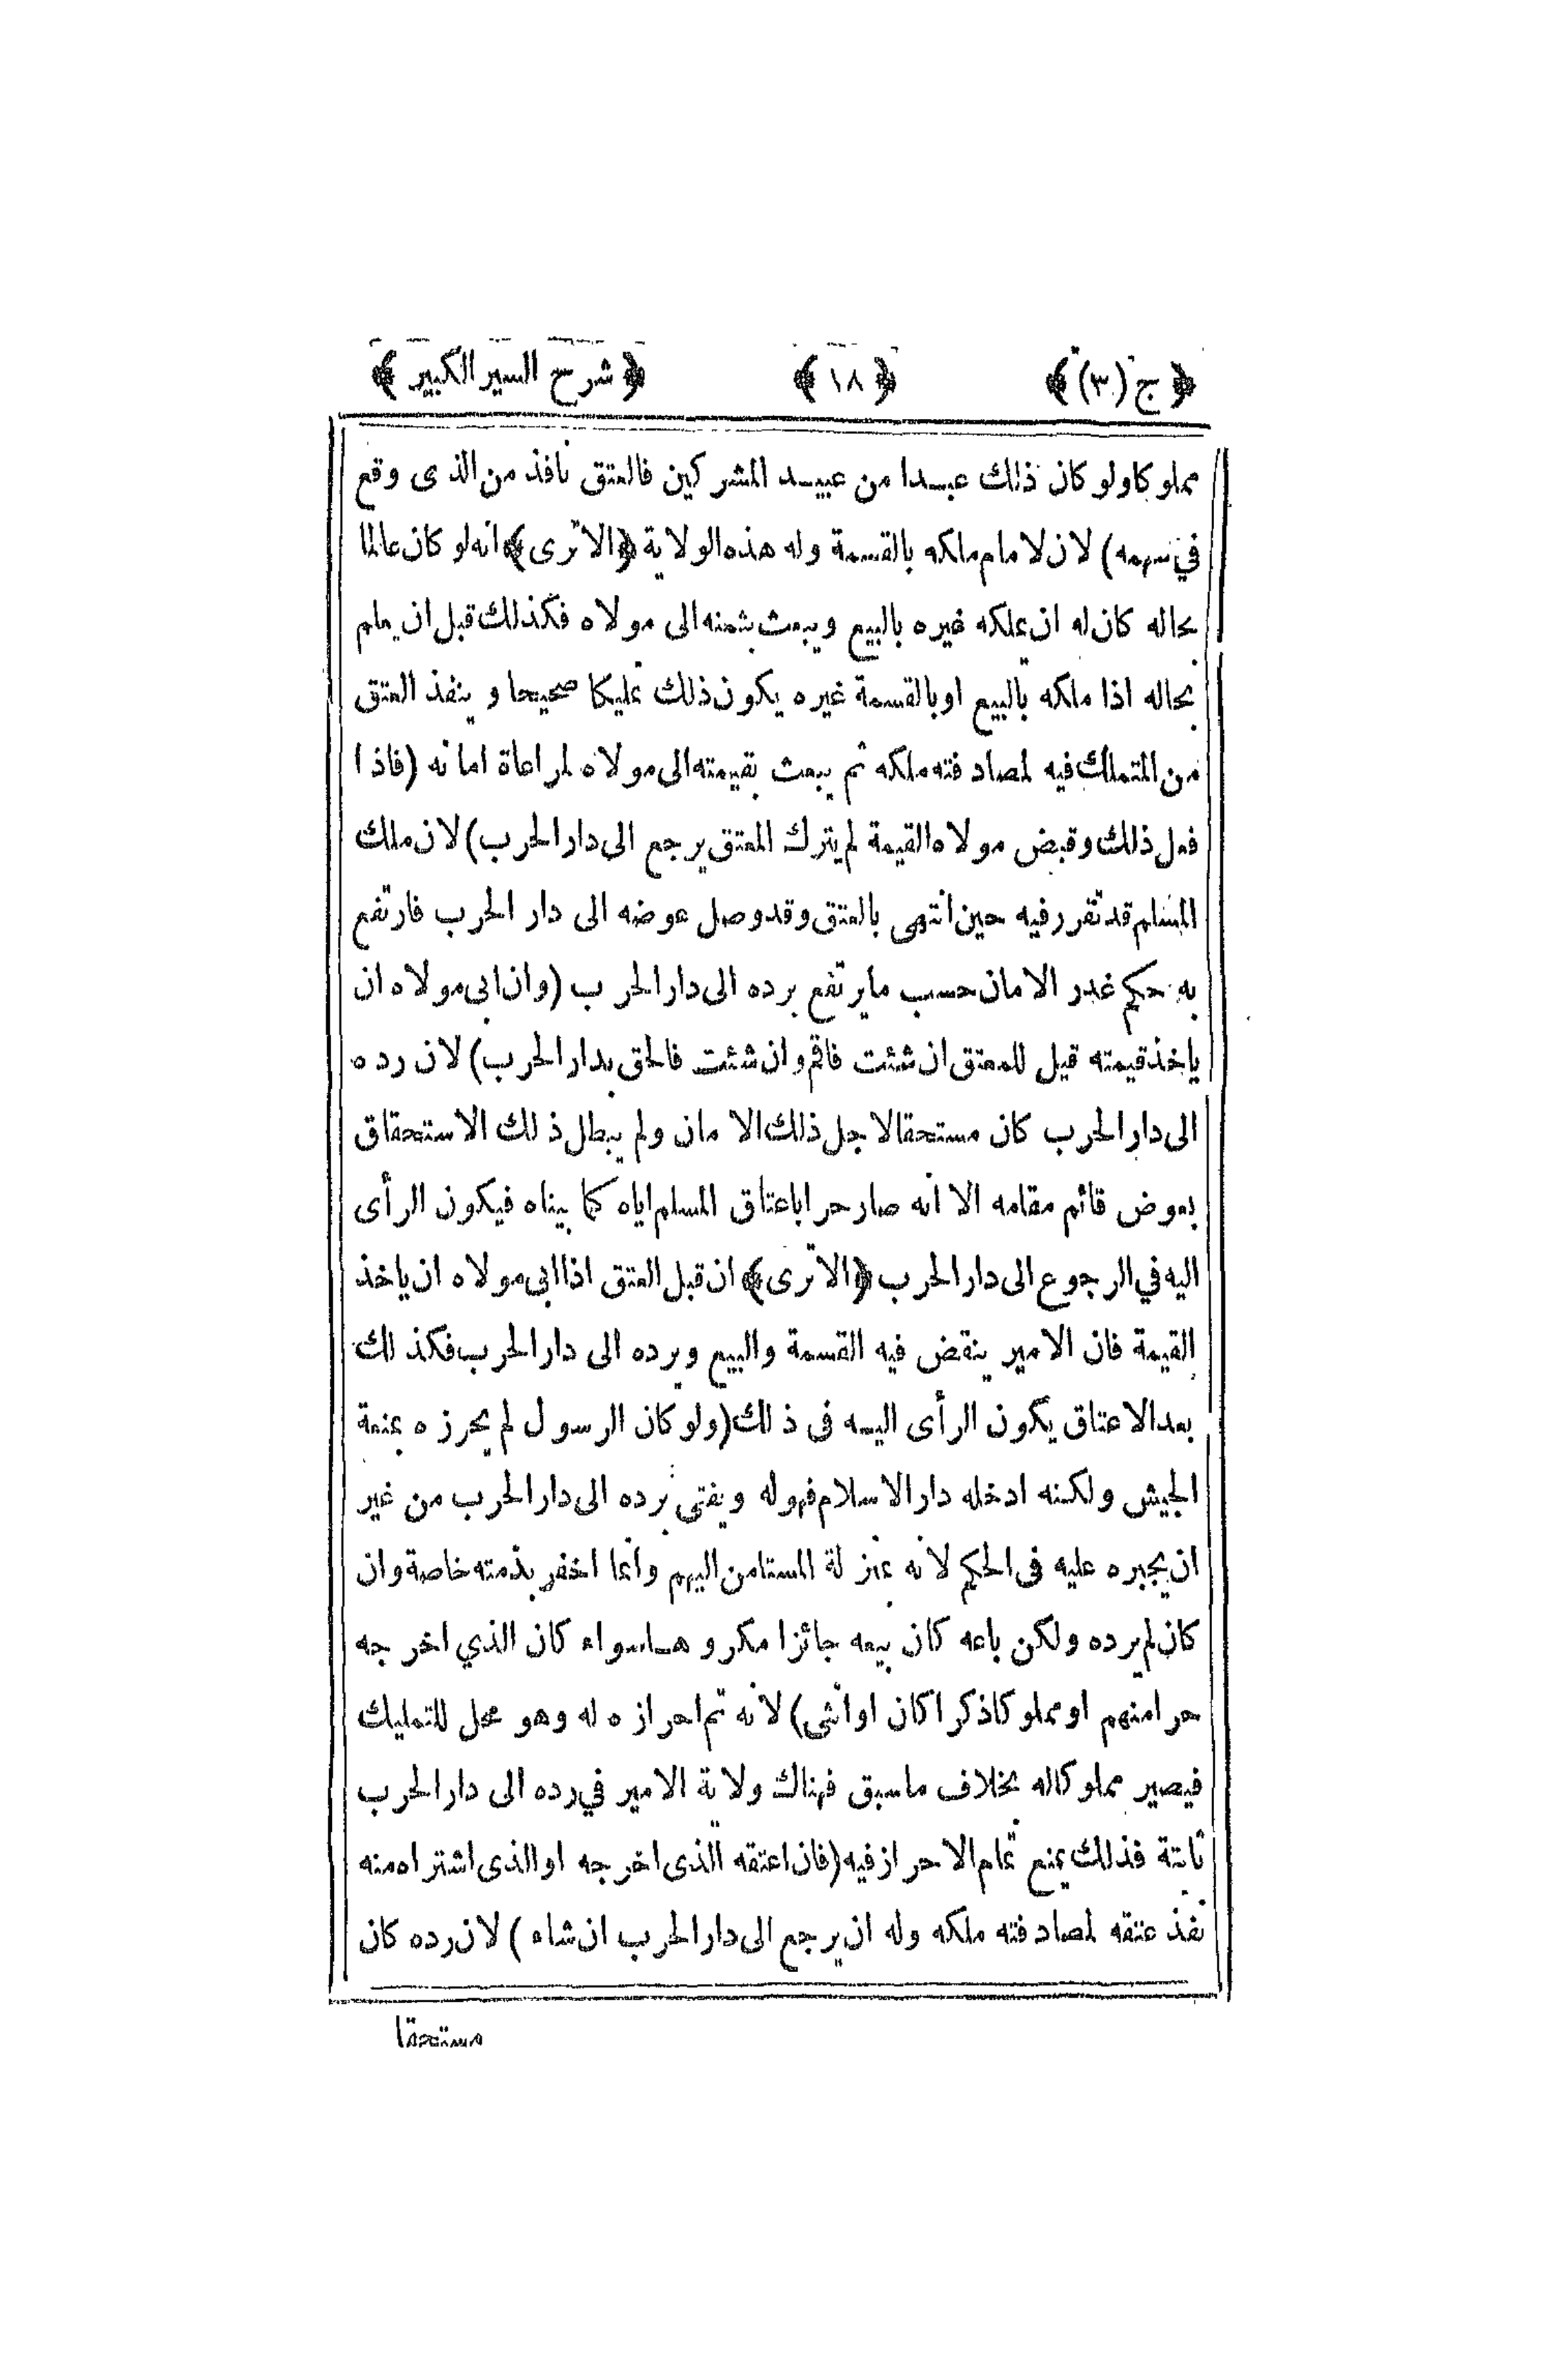 ﴿ ج (٣) ﴾ ﴿ ١٨ ﴾ ﴿ شرح السير الكبير ﴾
مملوكا ولو كان ذلك عبدا من عبيد المشركين فالعتق نافذ من الذى وقع
في سهمه) لان لامام ملكه بالقسمة وله هذه الولاية ﴿الا ترى﴾ انه لو كان عالما
بحاله كان له ان يملكه غيره بالبيع ويبعث بثمنه الى مولاه فكذلك قبل ان يعلم
بحاله اذا ملكه بالبيع او بالقسمة غيره يكون ذلك تمليكا صحيحا و ينفذ العتق
من المتملك فيه لمصادفته ملكه ثم يبعث بقيمته الى مولاه لمراعاة امانه (فاذا
فعل ذلك وقبض مولاه القيمة لم يترك المعتق يرجع الى دار الحرب) لان ملك
المسلم قد تقرر فيه حين انتهى بالعتق وقد وصل عوضه الى دار الحرب فارتفع
به حكم غدر الامان حسب ما يرتفع برده الى دار الحرب (وان ابى مولاه ان
ياخذ قيمته قيل للمعتق ان شئت فاقم وان شئت فالحق بدار الحرب) لان رده
الى دار الحرب كان مستحقا لاجل ذلك الامان ولم يبطل ذلك الاستحقاق
بعوض قائم مقامه الا انه صار حرا باعتاق المسلم اياه كما بيناه فيكون الرأى
اليه في الرجوع الى دار الحرب ﴿الا ترى﴾ ان قبل العتق اذا ابى مولاه ان ياخذ
القيمة فان الامير ينقض فيه القسمة والبيع ويرده الى دار الحرب فكذلك
بعد الاعتاق يكون الرأى اليه فى ذلك (ولو كان الرسول لم يحرزه بمنعة
الجيش ولكنه ادخله دار الاسلام فهو له ويفتى برده الى دار الحرب من غير
ان يجبره عليه فى الحكم لانه بمنزلة المستامن اليهم وانما اخفر بذمته خاصة وان
كان لم يرده ولكن باعه كان بيعه جائزا مكروها سواء كان الذي اخرجه
حرا منهم او مملوكا ذكرا كان او انثى) لانه تم احرازه له وهو محل للتمليك
فيصير مملوكا له بخلاف ما سبق فهناك ولاية الامير في رده الى دار الحرب
ثابتة فذلك يمنع تمام الاحراز فيه (فان اعتقه الذى اخرجه او الذى اشتراه منه
نفذ عتقه لمصادفته ملكه وله ان يرجع الى دار الحرب ان شاء ) لان رده كان
مستحقا